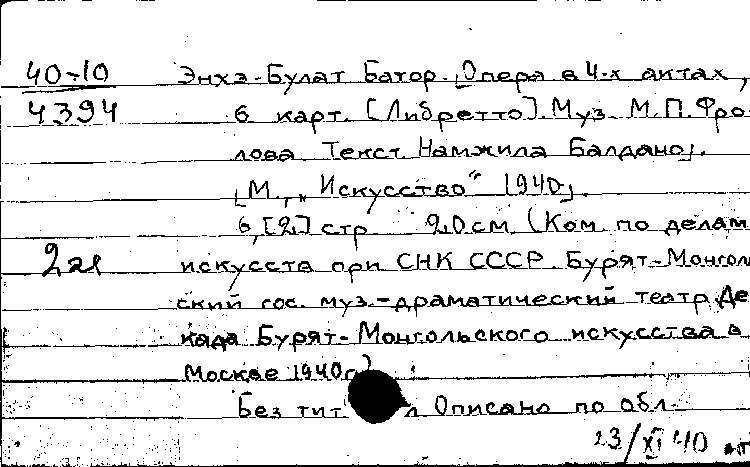 40-10 Энхэ-Булат Батор. [Опера в 4-х актах,
4394 6 карт. [Либретто]. Муз. М.П. Фро-
лова Текст Намжила Балдано].
[М., „Искусство“ 1940].
6,[2] стр. 20 см. (Ком. по делам
2эк искусств при СНК СССР. Бурят-Монголь
ский гос. муз.-драматический театр Де
када Бурят-Монгольского искусства в
Москве 1940г)
Без тит л Описано по обл.
23/XI 40